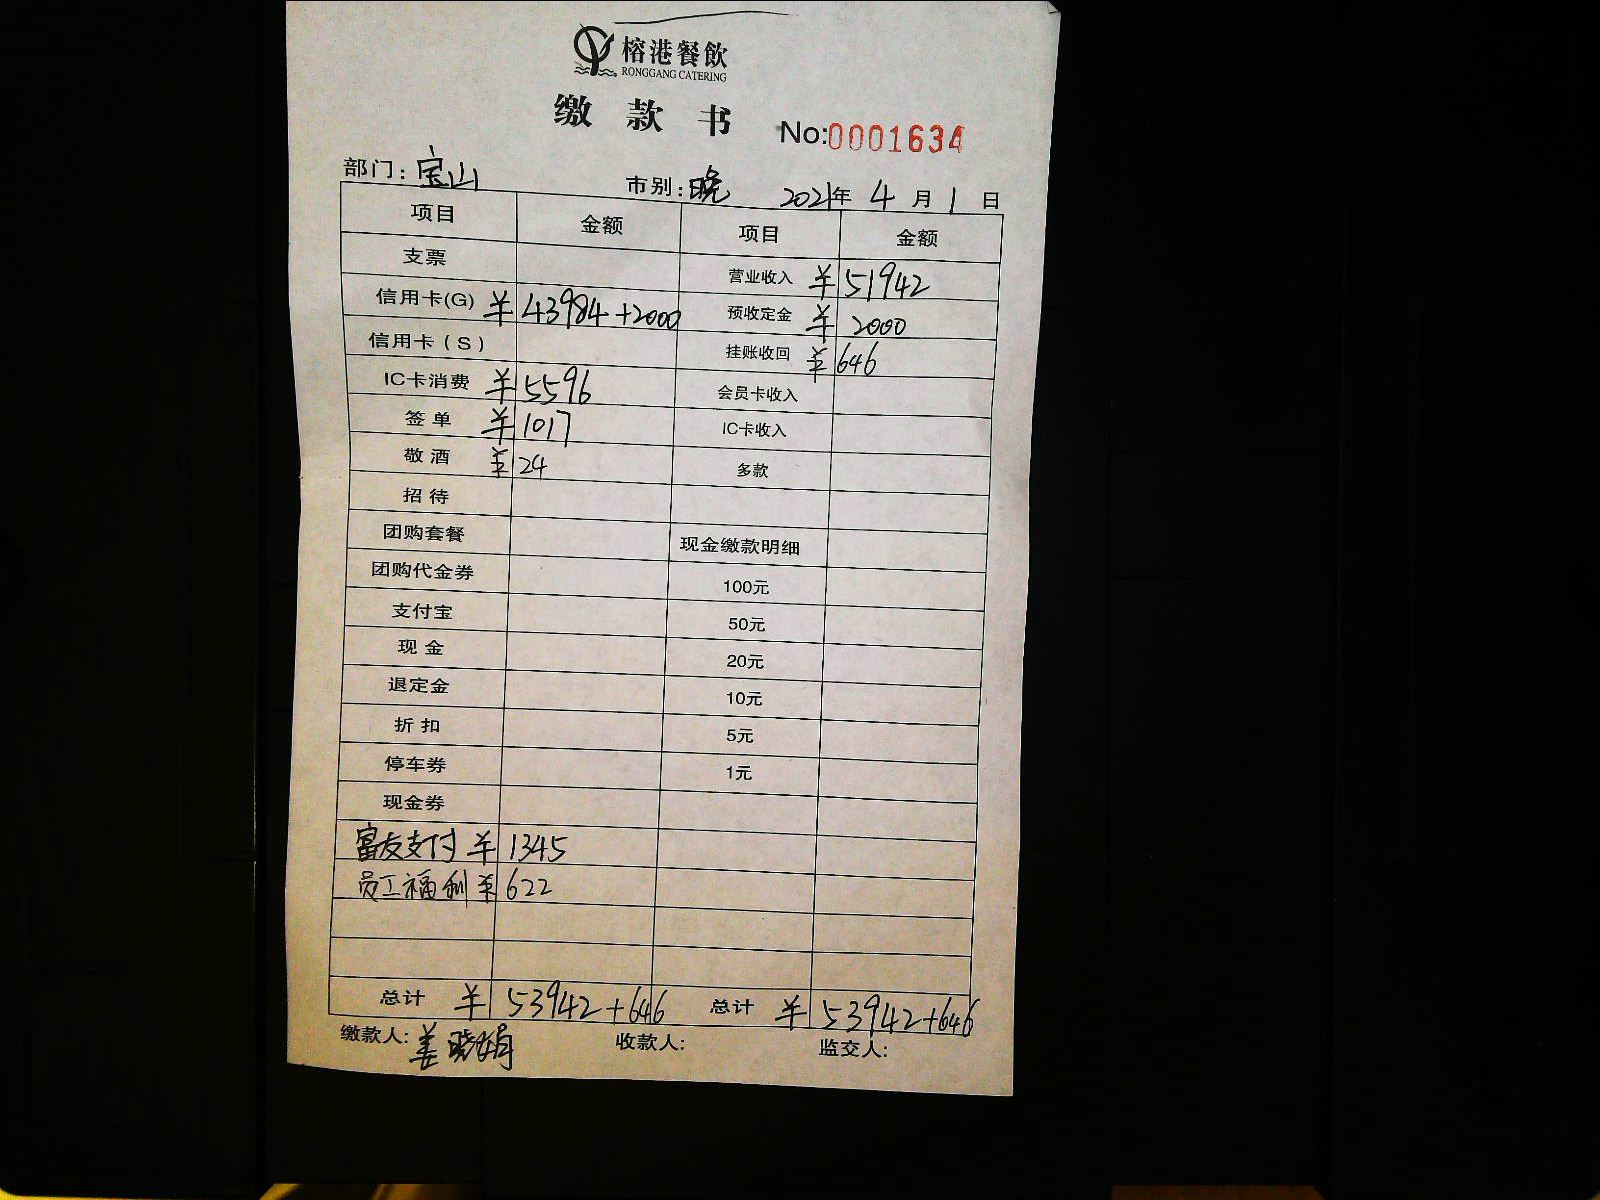 榕港餐飲
RONGGANG CATERING
缴 款 书
No:0001634
部门：宝山 市别：晚 2021年 4 月 1 日
项目 金额 项目 金额
支票 营业收入 ¥51942
信用卡(G) ¥43984+2000 预收定金 ¥2000
信用卡（S） 挂账收回 ¥646
IC卡消费 ¥5596 会员卡收入
签 单 ¥1017 IC卡收入
敬 酒 ¥24 多款
招 待
团购套餐 现金缴款明细
团购代金券 100元
支付宝 50元
现 金 20元
退定金 10元
折 扣 5元
停车券 1元
现金券
富友支付 ¥1345
员工福利 ¥622
总计 ¥53942+646 总计 ¥53942+646
缴款人：姜晓娟 收款人： 监交人：